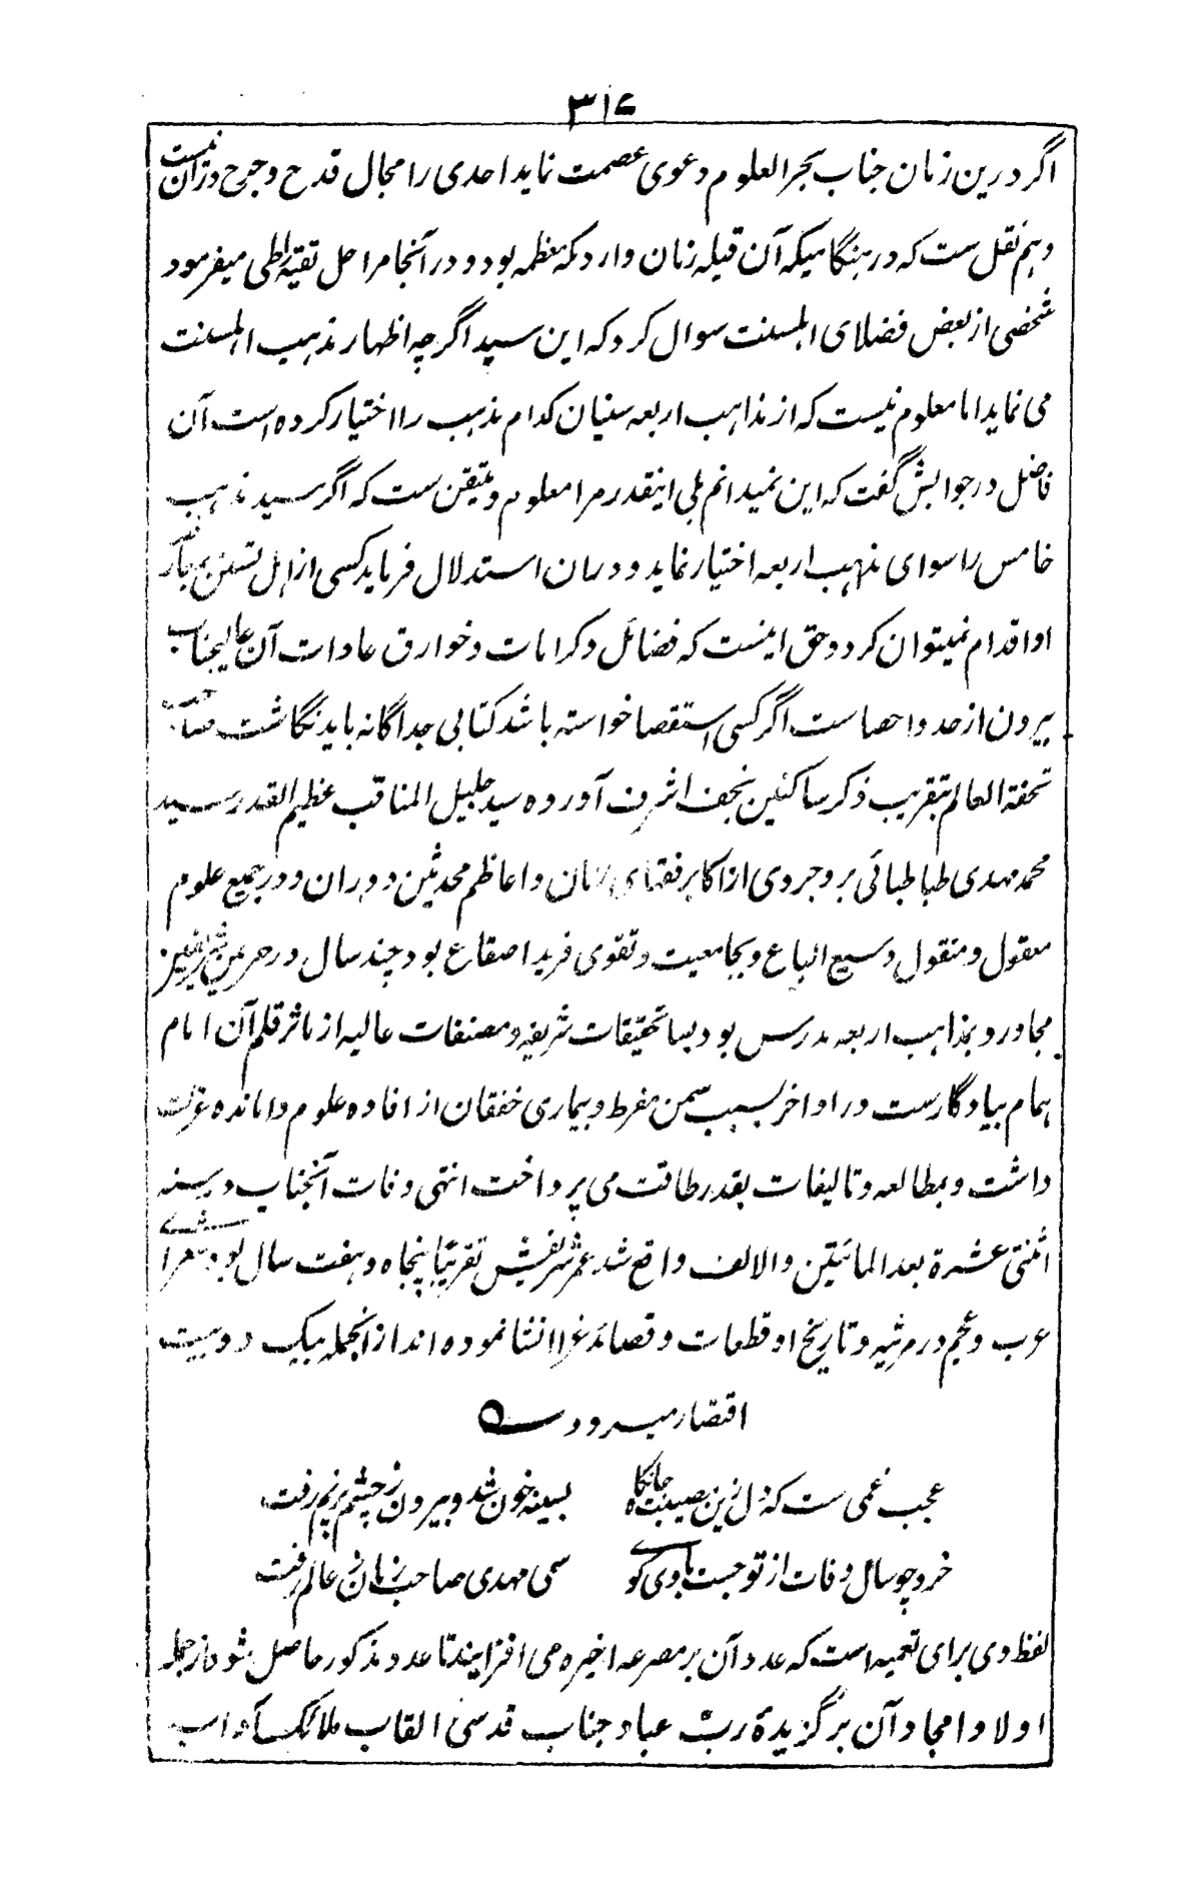 ۳۱۶
اگر درین زمان جناب بحر العلوم دعوی عصمت نماید احدی را مجال قدح و جرح در آن نیست
و هم نقل ست که در هنگامیکه آن قبله زمان وارد مکه معظمه بود و در آنجا مراحل تقیه را طی میفرمود
شخصی از بعض فضلای اہلسنت سوال کرد که این سید اگرچه اظهار مذہب اہلسنت
می نماید اما معلوم نیست که از مذاہب اربعه سنیان کدام مذہب را اختیار کرده است آن
فاضل در جوابش گفت که این نمیدانم بلی اینقدر مرا معلوم و متیقن ست که اگر سید مذہب
خامس را سوای مذہب اربعه اختیار نماید و در ان استدلال فرماید کسی از اہل تسنن
او اقدام نمیتوان کرد و حق اینست که فضائل و کرامات و خوارق عادات آن عالیجناب
بیرون از حد و احصاست اگر کسی استقصا خواسته باشد کتابی جداگانه باید نگاشت صاحب
تحفة العالم بتقریب ذکر ساکنین نجف اشرف آورده سید جلیل المناقب عظیم القدر سید
محمد مهدی طباطبائی بروجردی از اکابر فقهای زمان و اعاظم محدثین دوران و در جمیع علوم
معقول و منقول وسیع الباع و بجامعیت و تقوی فرید اصقاع بود چند سال در حرمین شریفین
مجاور و بمذاہب اربعه مدرس بود بسا تحقیقات شریفه و مصنفات عالیه از ماثر قلم آن امام
ہمام بیادگارست در اواخر بسبب سمن مفرط و بیماری خفقان از افاده علوم وامانده عزلت
داشت و بمطالعه و تالیفات بقدر طاقت می پرداخت انتهی وفات آنجناب در سنه
اثنتی عشرة بعد المائتین والالف واقع شد عمر شریفش تقریبًا پنجاه و هفت سال بود شعرای
عرب و عجم در مرثیه و تاریخ او قطعات و قصائد غرا انشا نموده اند از انجمله بیک دو بیت
اقتصار میرود ہ
عجب غمی ست که دل زین مصیبت جانکاه بسینه خون شد و بیرون ز چشم پر نم رفت
خرد چو سال وفات از تو جست با وی گو سمی مهدی صاحب زمان ز عالم رفت
لفظ وی برای تعمیه است که عدد آن بر مصرعه اخیره می افزایند تا عدد مذکور حاصل شود از جمله
اولاد امجاد آن برگزیدۂ رب عباد جناب قدسی القاب ملائک آداب